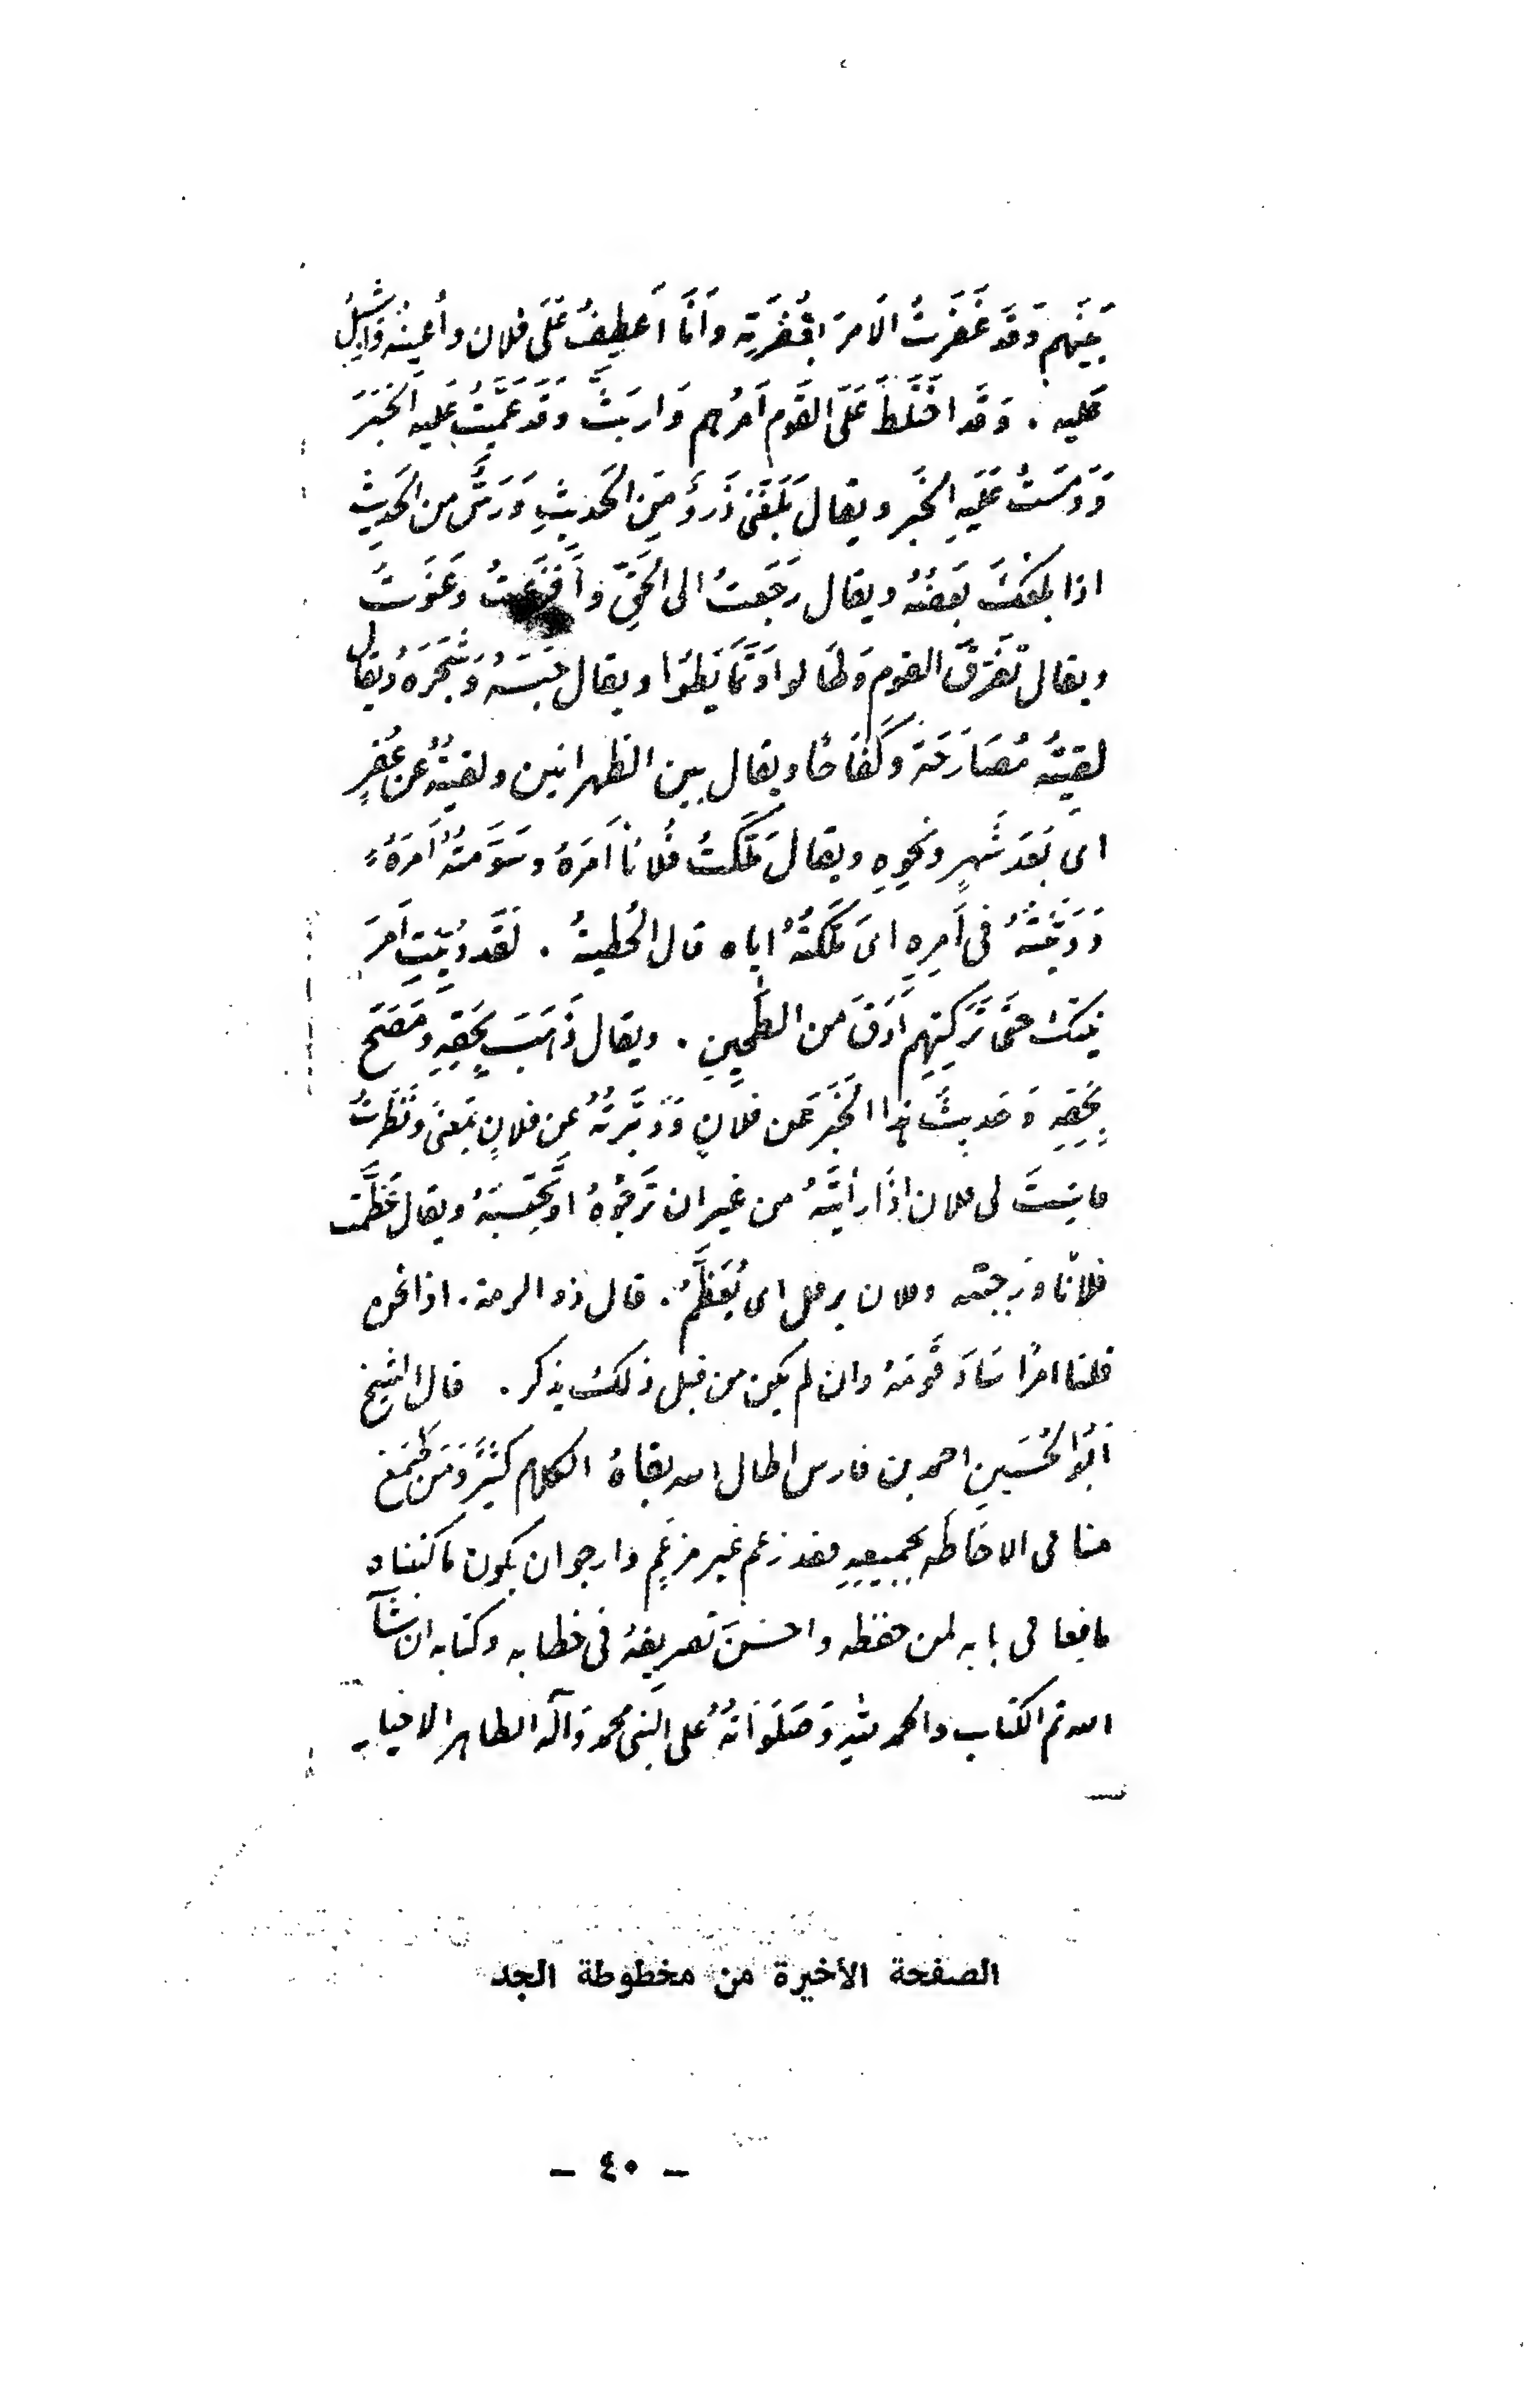 بَينَهم وَقَد غَفَرتُ الأمرَ بغُفرَتِه وَأنَا أعطِفُ عَلَى فلان وأعينُه وَأُشبِلُ
عَليه . وَقَد اختَلَطَ عَلَى القَوم أمرُهم وَاربَثَّ وَقَد عَمَّيتُ عَليه الخَبَرَ
وَدَمَستُ عَلَيهِ الخَبَر ويقال بَلَغَنى ذَروٌ مِنَ الحَديثِ وَرَسٌّ من الحَدِيثِ
اذا بلغكَ بَعضُهُ ويقال رَجَعتُ الى الحَيِّ وَ وعَنَوتُ
ويقال تَفَرَّقَ القوم وتمَايَطُوا ويقال حَبَسَهُ وَشَجَرَهُ ويقال
لقيتُه مُصَارَحَة وَكفَاحًا ويقال بين الظهرانين ولقيتُهُ عن عُفرٍ
اى بَعدَ شَهرٍ ونَحوِهِ ويقالَ مَلَّكتُ فُلانًا أمرَهُ وسَوَّمتُهُ أمرَهُ
وَدَيَّنتُهُ فى أمرِهِ اى مَلَّكتُهُ اياه قال الحُطيئةُ . لقَد دُيِّنتِ أمرَ
بَنيكَ حتَّى تَرَكتِهِم أدَقَّ من الطَّحِينِ . ويقال ذَهَبَ بِحَقِّهِ وَمَصَحَ
بِحَقِّهِ وَحَديثُ هذا الخَبَر عَن فلانٍ وَدَبَّرتُهُ عن فلانٍ بمَعنى وَنَظَرتُ
لى فلان اذَا رَأيتَهُ من غير ان تَرجُوَهُ او تَحتَسِبَهُ ويقال عَظَّمتُ
فلانًا ورَجبتُه وفلان يرفل اى يُعَظَّمُ . قال ذو الرمة . اذا نحن
فلنا امرًا سَادَ قَومَهُ وان لم يكن من قبل ذلك يذكر . قال الشيخ
أبُو الحُسَينِ احمد بن فارس اطال الله بقاهُ الكلام كثيرٌ وَمَن طَمِعَ
منا فى الاحَاطَه بجميعِهِ فقد زعم غير مزعَمٍ وارجوان يكون ماكتبناه
نافعا فى بابه لمن حفظه واحسَنَ تصرِيفَهُ فى خطابه وكتابه ان شآ
الله تم الكتاب والحمد للهِ وَصَلَوَاتُهُ على النبى محمد وَآله الطاهر الاخيار
الصفحة الأخيرة من مخطوطة الجد
– ٤٠ –